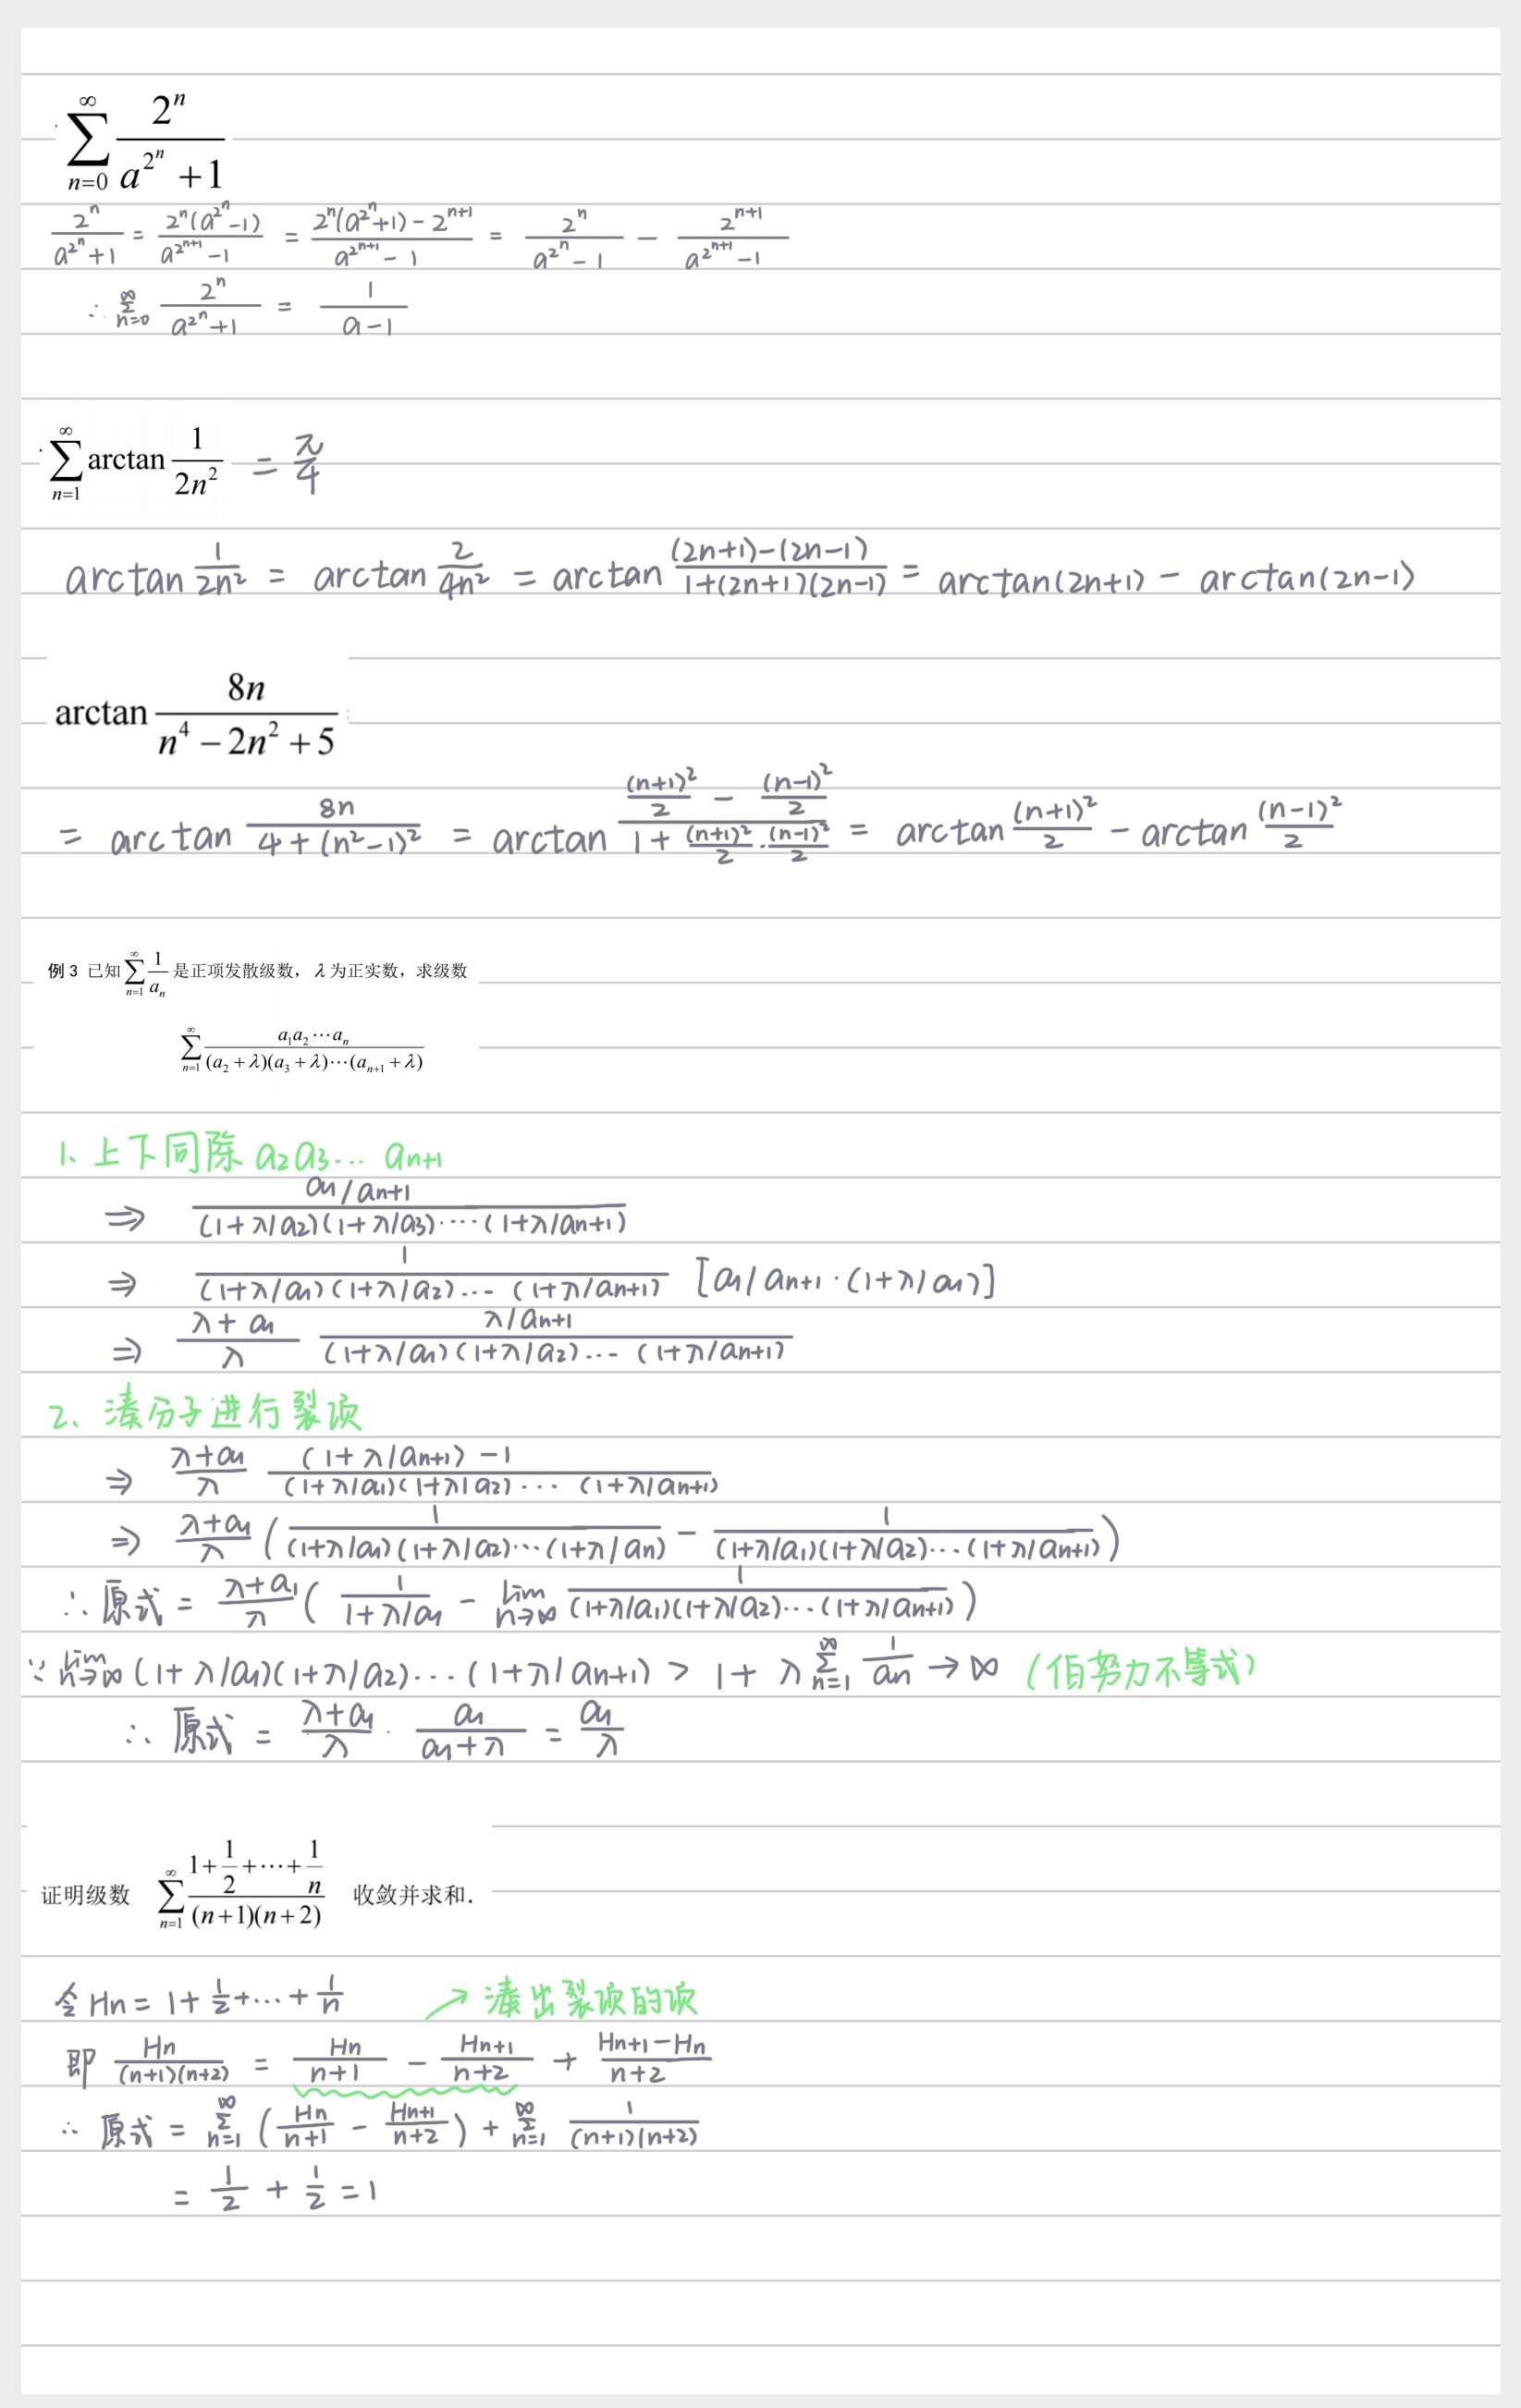 $\sum_{n=0}^{\infty} \frac{2^n}{a^{2^n}+1}$
$\frac{2^n}{a^{2^n}+1} = \frac{2^n(a^{2^n}-1)}{a^{2^{n+1}}-1} = \frac{2^n(a^{2^n}+1)-2^{n+1}}{a^{2^{n+1}}-1} = \frac{2^n}{a^{2^n}-1} - \frac{2^{n+1}}{a^{2^{n+1}}-1}$
$\therefore \sum_{n=0}^{\infty} \frac{2^n}{a^{2^n}+1} = \frac{1}{a-1}$
$\sum_{n=1}^{\infty} \arctan \frac{1}{2n^2} = \frac{\pi}{4}$
$\arctan \frac{1}{2n^2} = \arctan \frac{2}{4n^2} = \arctan \frac{(2n+1)-(2n-1)}{1+(2n+1)(2n-1)} = \arctan(2n+1) - \arctan(2n-1)$
$\arctan \frac{8n}{n^4-2n^2+5}$
$= \arctan \frac{8n}{4+(n^2-1)^2} = \arctan \frac{\frac{(n+1)^2}{2} - \frac{(n-1)^2}{2}}{1+\frac{(n+1)^2}{2} \cdot \frac{(n-1)^2}{2}} = \arctan \frac{(n+1)^2}{2} - \arctan \frac{(n-1)^2}{2}$
例 3 已知 $\sum_{n=1}^{\infty} \frac{1}{a_n}$ 是正项发散级数，λ 为正实数，求级数
$\sum_{n=1}^{\infty} \frac{a_1 a_2 \cdots a_n}{(a_2+\lambda)(a_3+\lambda)\cdots(a_{n+1}+\lambda)}$
1、上下同除 $a_2 a_3 \cdots a_{n+1}$
$\Rightarrow \frac{a_1/a_{n+1}}{(1+\lambda/a_2)(1+\lambda/a_3)\cdots(1+\lambda/a_{n+1})}$
$\Rightarrow \frac{1}{(1+\lambda/a_1)(1+\lambda/a_2)\cdots(1+\lambda/a_{n+1})} [a_1/a_{n+1} \cdot (1+\lambda/a_1)]$
$\Rightarrow \frac{\lambda+a_1}{\lambda} \frac{\lambda/a_{n+1}}{(1+\lambda/a_1)(1+\lambda/a_2)\cdots(1+\lambda/a_{n+1})}$
2、凑分子进行裂项
$\Rightarrow \frac{\lambda+a_1}{\lambda} \frac{(1+\lambda/a_{n+1})-1}{(1+\lambda/a_1)(1+\lambda/a_2)\cdots(1+\lambda/a_{n+1})}$
$\Rightarrow \frac{\lambda+a_1}{\lambda} \left( \frac{1}{(1+\lambda/a_1)(1+\lambda/a_2)\cdots(1+\lambda/a_n)} - \frac{1}{(1+\lambda/a_1)(1+\lambda/a_2)\cdots(1+\lambda/a_{n+1})} \right)$
$\therefore$ 原式 $= \frac{\lambda+a_1}{\lambda} \left( \frac{1}{1+\lambda/a_1} - \lim_{n\to\infty} \frac{1}{(1+\lambda/a_1)(1+\lambda/a_2)\cdots(1+\lambda/a_{n+1})} \right)$
$\because \lim_{n\to\infty} (1+\lambda/a_1)(1+\lambda/a_2)\cdots(1+\lambda/a_{n+1}) > 1+\lambda \sum_{n=1}^{\infty} \frac{1}{a_n} \to \infty$ (伯努力不等式)
$\therefore$ 原式 $= \frac{\lambda+a_1}{\lambda} \cdot \frac{a_1}{a_1+\lambda} = \frac{a_1}{\lambda}$
证明级数 $\sum_{n=1}^{\infty} \frac{1+\frac{1}{2}+\cdots+\frac{1}{n}}{(n+1)(n+2)}$ 收敛并求和.
令 $H_n = 1+\frac{1}{2}+\cdots+\frac{1}{n}$ ↗ 凑出裂项的项
即 $\frac{H_n}{(n+1)(n+2)} = \frac{H_n}{n+1} - \frac{H_{n+1}}{n+2} + \frac{H_{n+1}-H_n}{n+2}$
$\therefore$ 原式 $= \sum_{n=1}^{\infty} \left( \frac{H_n}{n+1} - \frac{H_{n+1}}{n+2} \right) + \sum_{n=1}^{\infty} \frac{1}{(n+1)(n+2)}$
$= \frac{1}{2} + \frac{1}{2} = 1$